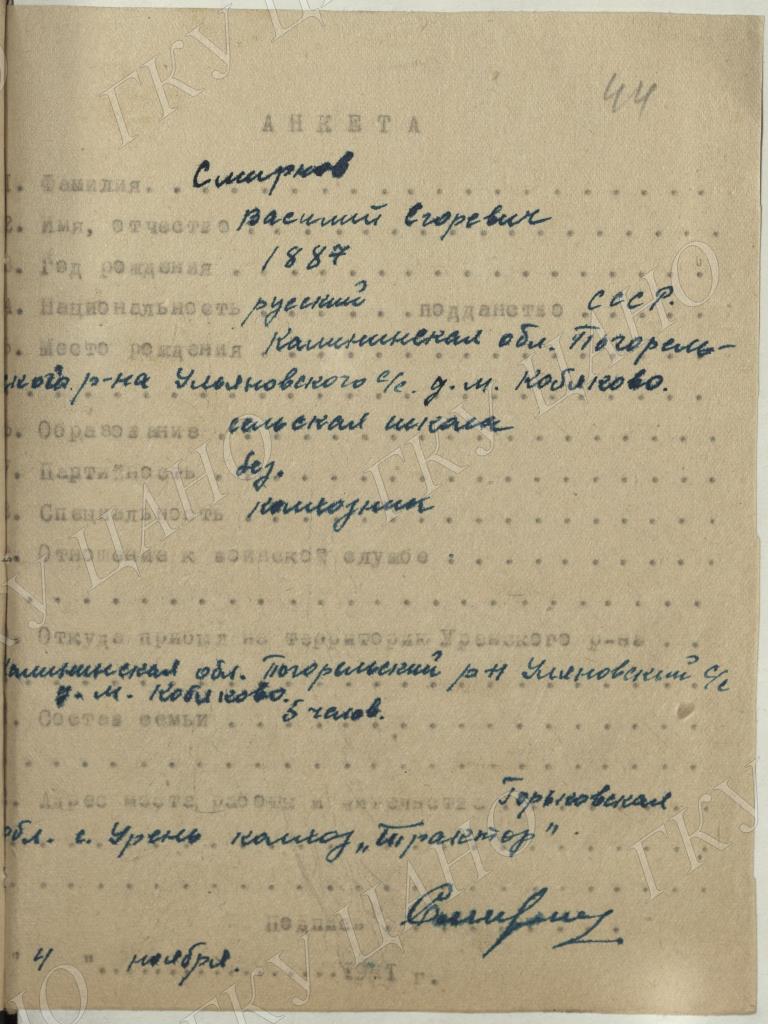 44
АНКЕТА
1. Фамилия. Смирнов
2. Имя, отчество Василий Егоревич
3. Год рождения 1887
4. Национальность русский подданство СССР.
5. Место рождения Калининская обл. Погорель-
ского р-на Ульяновского с/с. д. М. Кобяково.
6. Образование сельская школа
7. Партийность без.
8. Специальность колхозник
Отношение к воинской службе :
Откуда прибыл на территорию Уренского р-на
Калининская обл. Погорельский р-н Уляновский с/с
д. М. Кобяково.
Состав семьи 5 челов.
Адрес места работы и жительства Горьковская
обл. с. Урень колхоз „Трактор"
Подпись Смирнов
" 4 " ноября. 1941 г.
ГКУ ЦАНО